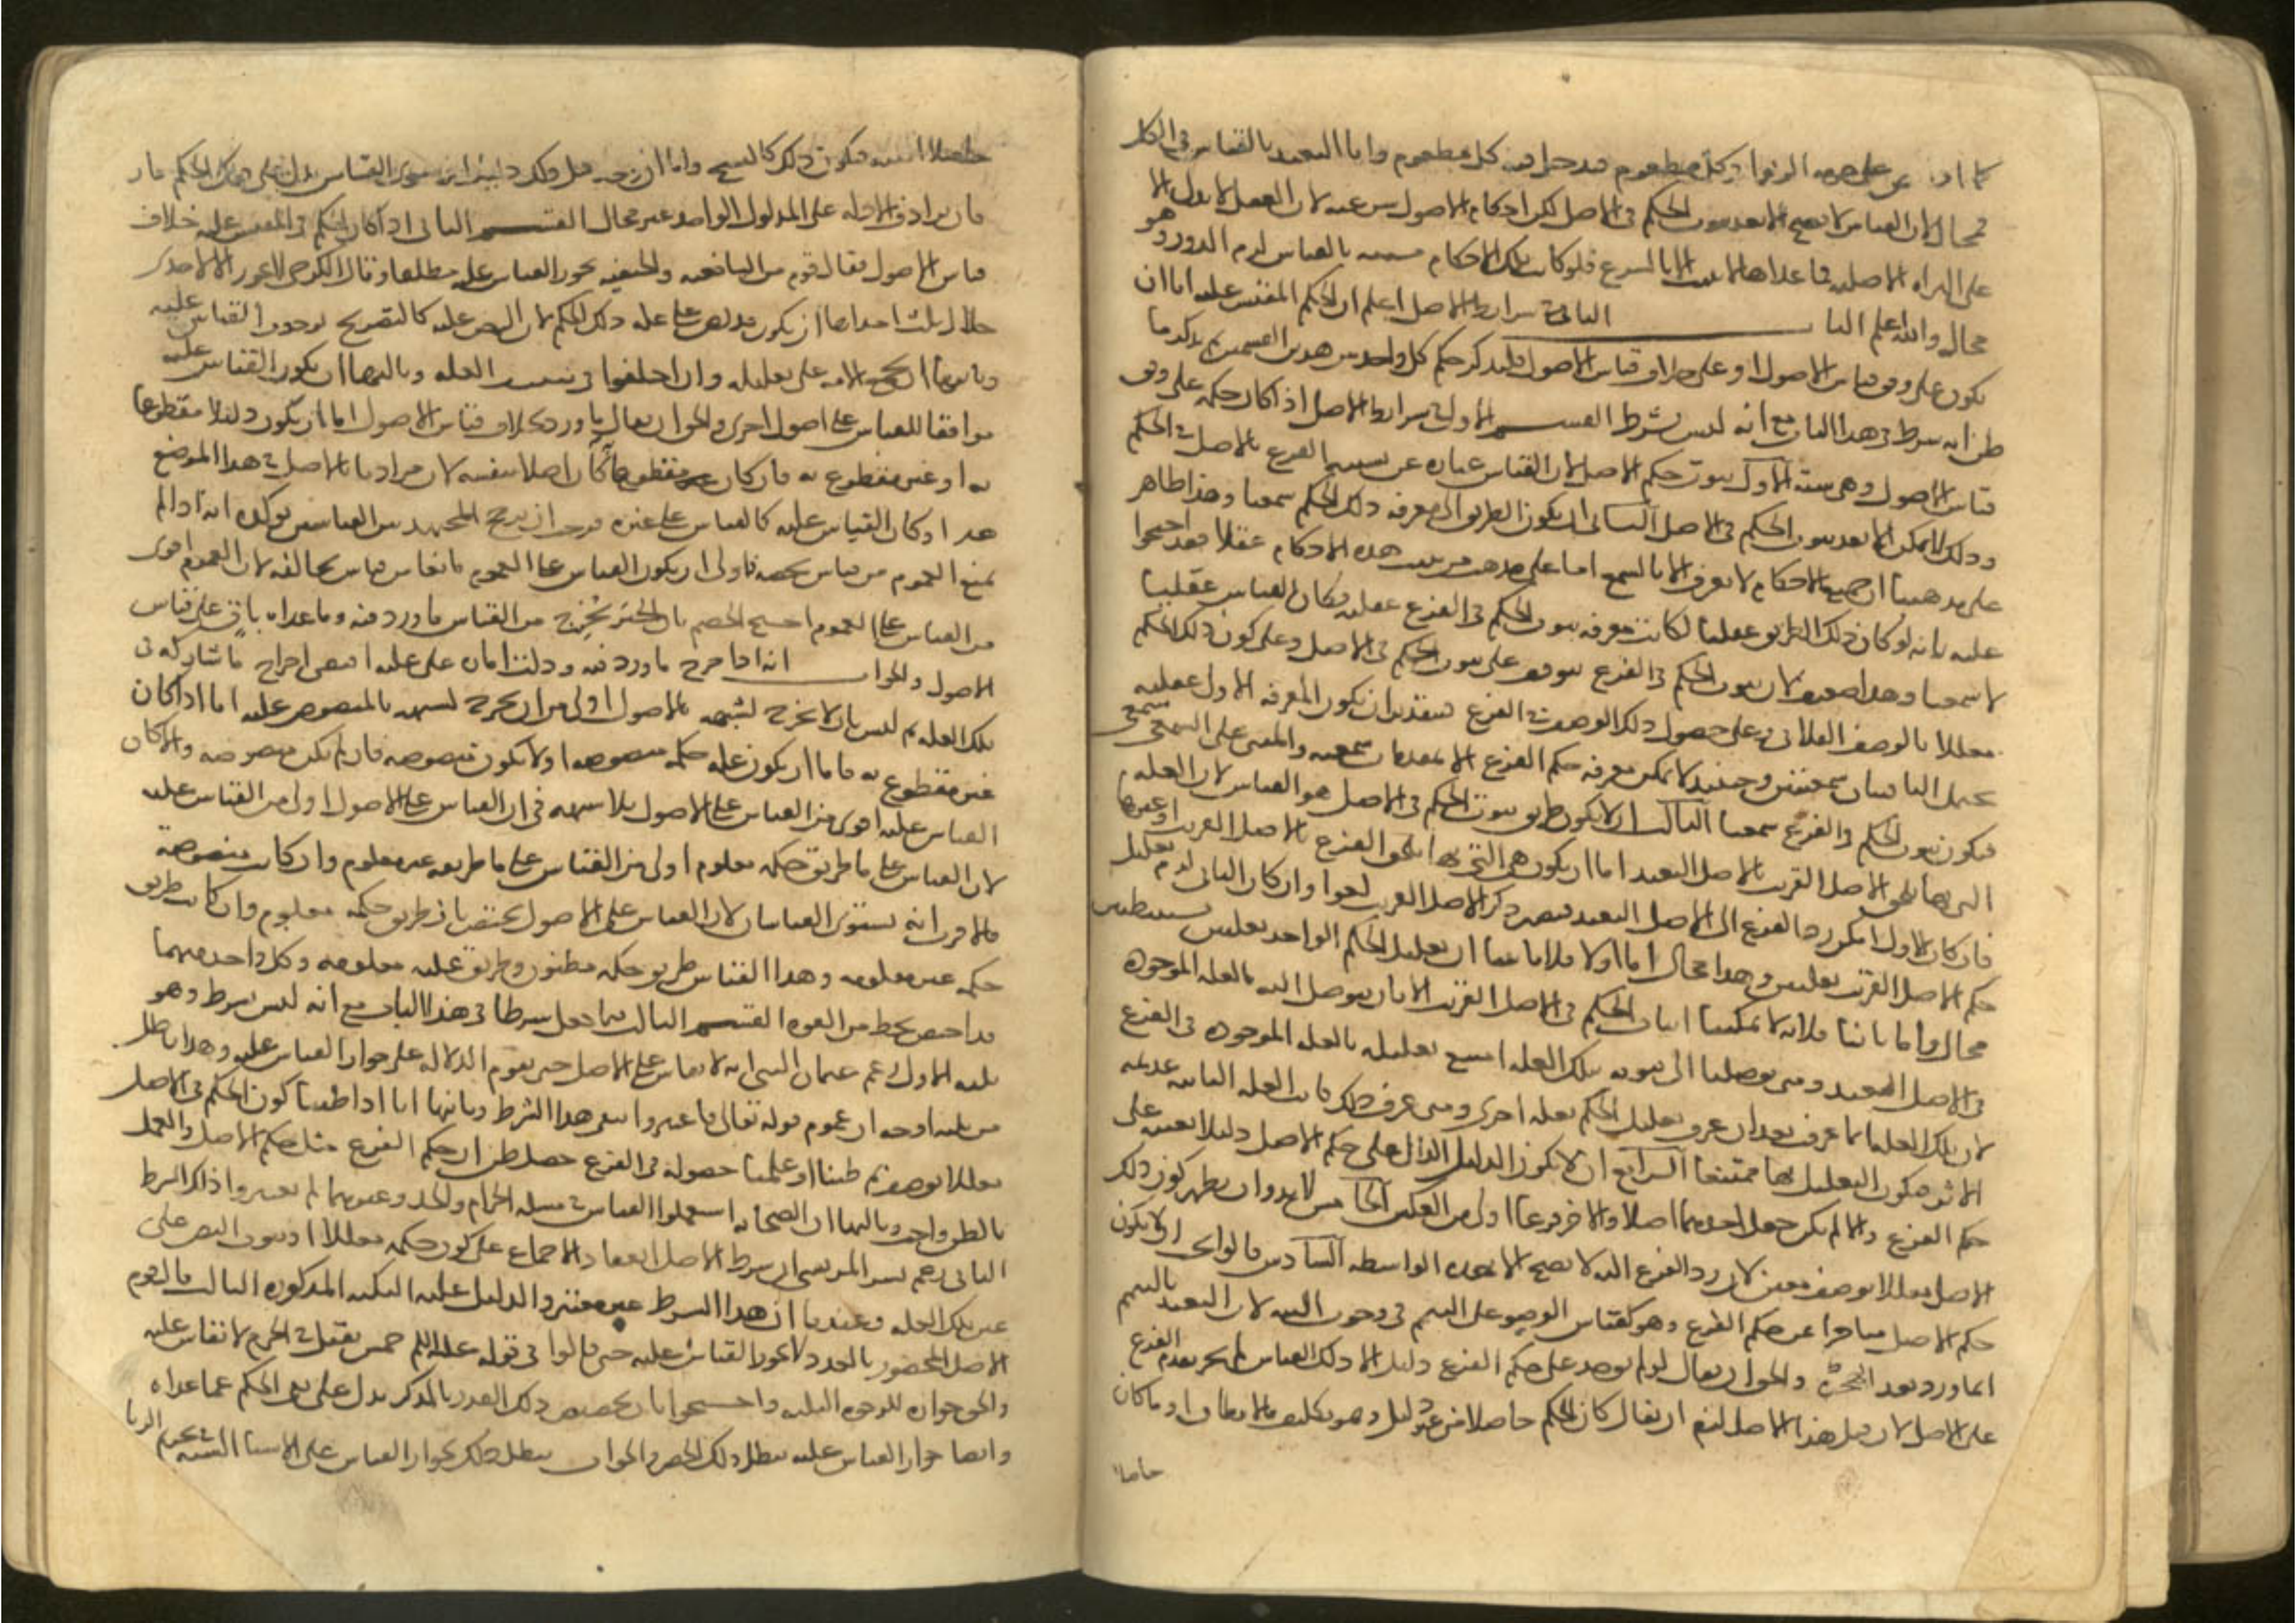 كما اذا نص على حرمة الربوا في كل مطعوم فدخل فيه كل مطعوم واما التعبد بالقياس في الكل
فمحال لان القياس لا يصح الا بعد ثبوت الحكم في الاصل لكن احكام الاصول شرعية لان العقل لا يدل الا
على البراة الاصلية فما عداها لا يثبت الا بالشرع فلو كانت تلك الاحكام مثبتة بالقياس لزم الدور وهو
محال والله اعلم الباب الثاني في شرايط الاصل اعلم ان الحكم المقيس عليه اما ان
يكون على وفق قياس الاصول او على خلاف قياس الاصول فلنذكر حكم كل واحد من هذين القسمين ثم نذكر ما
ظن انه شرط في هذا الباب مع انه ليس بشرط القسم الاول في شرايط الاصل اذا كان حكمه على وفق
قياس الاصول وهي ستة الاول ثبوت حكم الاصل لان القياس عبارة عن تشبيه الفرع بالاصل في الحكم
وذلك لا يمكن الا بعد ثبوت الحكم في الاصل الثاني ان يكون الطريق الى معرفة ذلك الحكم سمعيا وهذا ظاهر
على مذهبنا ان جميع الاحكام لا يعرف الا بالسمع اما على مذهب من يثبت هذه الاحكام عقلا فقد احتجوا
عليه بانه لو كان ذلك الطريق عقليا لكانت معرفة ثبوت الحكم في الفرع عقلية فكان القياس عقليا
لا سمعيا وهذا ضعيف لان ثبوت الحكم في الفرع يتوقف على ثبوت الحكم في الاصل وعلى كون ذلك الحكم
معللا بالوصف الفلاني وعلى حصول ذلك الوصف في الفرع فبتقدير ان يكون المعرفة الاولى عقلية
يحتمل الباقيتان سمعيتين وحينئذ لا يمكن معرفة حكم الفرع الا بمقدمات سمعية والمبني على السمعي سمعي
فيكون ثبوت الحكم في الفرع سمعيا الثالث ان لا يكون طريق ثبوت الحكم في الاصل هو القياس لان العلة
التي بها يلحق الاصل القريب بالاصل البعيد اما ان يكون هي التي بها يلحق الفرع بالاصل القريب او غيرها
فان كان الاول امكن رد الفرع الى الاصل البعيد فيصير ذكر الاصل القريب لغوا وان كان الثاني لزم تعليل
حكم الاصل القريب بعلتين وهذا محال اما اولا فلما بينا ان تعليل الحكم الواحد بعلتين مستنبطتين
محال واما ثانيا فلانه لا يمكننا اثبات الحكم في الاصل القريب الا بان يتوصل اليه بالعلة الموجودة
في الاصل البعيد ومتى توصلنا الى ثبوته بتلك العلة امتنع تعليله بالعلة الموجودة في الفرع
لان تلك العلة انما عرف بعد ان عرف تعليل الحكم بعلة اخرى ومتى عرف ذلك كانت العلة الثانية عديمة
الاثر فيكون التعليل بها ممتنعا الرابع ان لا يكون الدليل الدال على حكم الاصل دليلا بعينه على
حكم الفرع والا لم يكن جعل احدهما اصلا والاخر فرعا اولى من العكس الخامس لا بد وان يظهر كون ذلك
الاصل معللا بوصف معين لان رد الفرع اليه لا يصح الا بهذه الواسطة السادس قالوا يجب ان لا يكون
حكم الاصل متاخرا عن حكم الفرع وهو كقياس الوضوء على التيمم في وجوب النية لان التعبد بالتيمم
انما ورد بعد الهجرة والحق ان يقال لو لم يوجد على حكم الفرع دليل الا ذلك القياس لم يجز تقدم الفرع
على الاصل لان قبل هذا الاصل لزم ان يقال كان الحكم حاصلا من غير دليل وهو تكليف ما لا يطاق او ما كان
حاصلا
حاصلا البتة فيكون ذلك كالنسخ واما ان وجد قبل ذلك دليل اخر سوى القياس يدل على ذلك الحكم جاز
فان ترادف الادلة على المدلول الواحد غير محال القسم الثاني اذا كان الحكم في المقيس عليه خلاف
قياس الاصول فقال قوم من الشافعية والحنفية يجوز القياس عليه مطلقا وقال الكرخي لا يجوز الا لاحدى
خلال ثلث احداها ان يكون قد نص على علة ذلك الحكم لان النص عليه كالتصريح بوجوب القياس عليه
وثانيها ان تجمع الامة على تعليله وان اختلفوا في تعيين العلة وثالثها ان يكون القياس عليه
موافقا للقياس على اصول اخرى والحق ان يقال ما ورد بخلاف قياس الاصول اما ان يكون دليلا مقطوعا
به او غير مقطوع به فان كان مقطوعا كان اصلا بنفسه لان مرادنا بالاصل في هذا الموضع
هذا وكان القياس عليه كالقياس على غيره فوجب ان يرجح المجتهد بين القياسين يؤكده انه اذا لم
يمنع العموم من قياس يخصه فاولى ان يكون القياس على العموم مانعا من قياس يخالفه لان العموم اقوى
من القياس على العموم احتج الخصم بان الخبر يخرج من القياس ما ورد فيه وما عداه باق على قياس
الاصول والجواب انه اذا خرج ما ورد فيه ودلت امارة على علته اقتضى اخراج ما شاركه في
تلك العلة ثم ليس بان لا يخرج لشبهه بالاصول اولى من ان يخرج لشبهه بالمنصوص عليه اما اذا كان
غير مقطوع به فاما ان يكون علة حكمه منصوصة او لا يكون منصوصة فان لم يكن منصوصة ولا كان
القياس عليه اقوى من القياس على الاصول فلا شبهة في ان القياس على الاصول اولى من القياس عليه
لان القياس على ما طريق حكمه معلوم اولى من القياس على ما طريقه غير معلوم وان كانت منصوصة
فالاقرب انه يستوي القياسان لان القياس على الاصول يختص بان طريق حكمه معلوم وان كانت طريق
حكمه غير معلومة وهذا القياس طريق حكمه مظنون وطريق علته معلومة وكل واحد منهما
قد اختص بحظ من القوة القسم الثالث فيما جعل شرطا في هذا الباب مع انه ليس بشرط وهو
ثلثة الاول زعم عثمان البتي انه لا يقاس على الاصل حتى يقوم الدلالة على جواز القياس عليه وهذا باطل
من ثلثة اوجه ان عموم قوله تعالى فاعتبروا ينفي هذا الشرط وثانيها انا اذا ظننا كون الحكم في الاصل
معللا بوصف ثم ظننا او علمنا حصوله في الفرع حصل ظن ان حكم الفرع مثل حكم الاصل والعمل
بالظن واجب وثالثها ان الصحابة استعملوا القياس في مسئلة الحرام والجد وغيرهما لم يعتبروا ذلك الشرط
الثاني زعم بشر المريسي ان شرط الاصل انعقاد الاجماع على كون حكمه معللا او ثبوت النص على
عين تلك العلة وعندنا ان هذا الشرط غير معتبر والدليل عليه النكتة المذكورة الثالث قال قوم
الاصل المحصور بالعدد لا يجوز القياس عليه حتى قالوا في قوله عليه السلم خمس يقتلن في الحرم لا نقاس عليه
والحق جوازه للوجوه الثلثة واحتجوا بان تخصيص ذلك العدد بالذكر يدل على نفي الحكم عما عداه
وايضا جواز القياس عليه يبطل ذلك الحصر والجواب يبطل ذلك بجواز القياس على الاشيا الستة في تحريم الربا